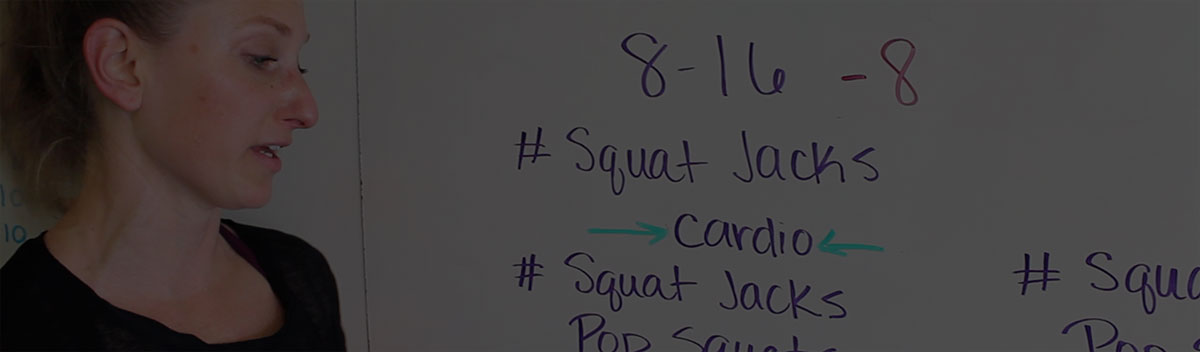 8-16 -8
# Squat Jacks
→ cardio ←
# Squat Jacks
Pop Squats
# Squa
Pop
10
10